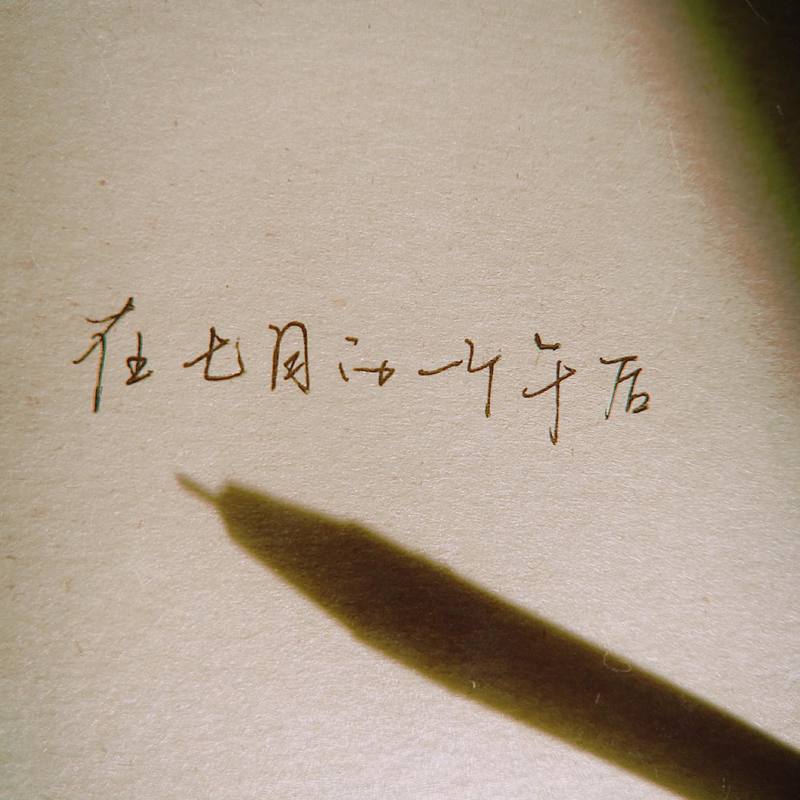 在七月的一个午后